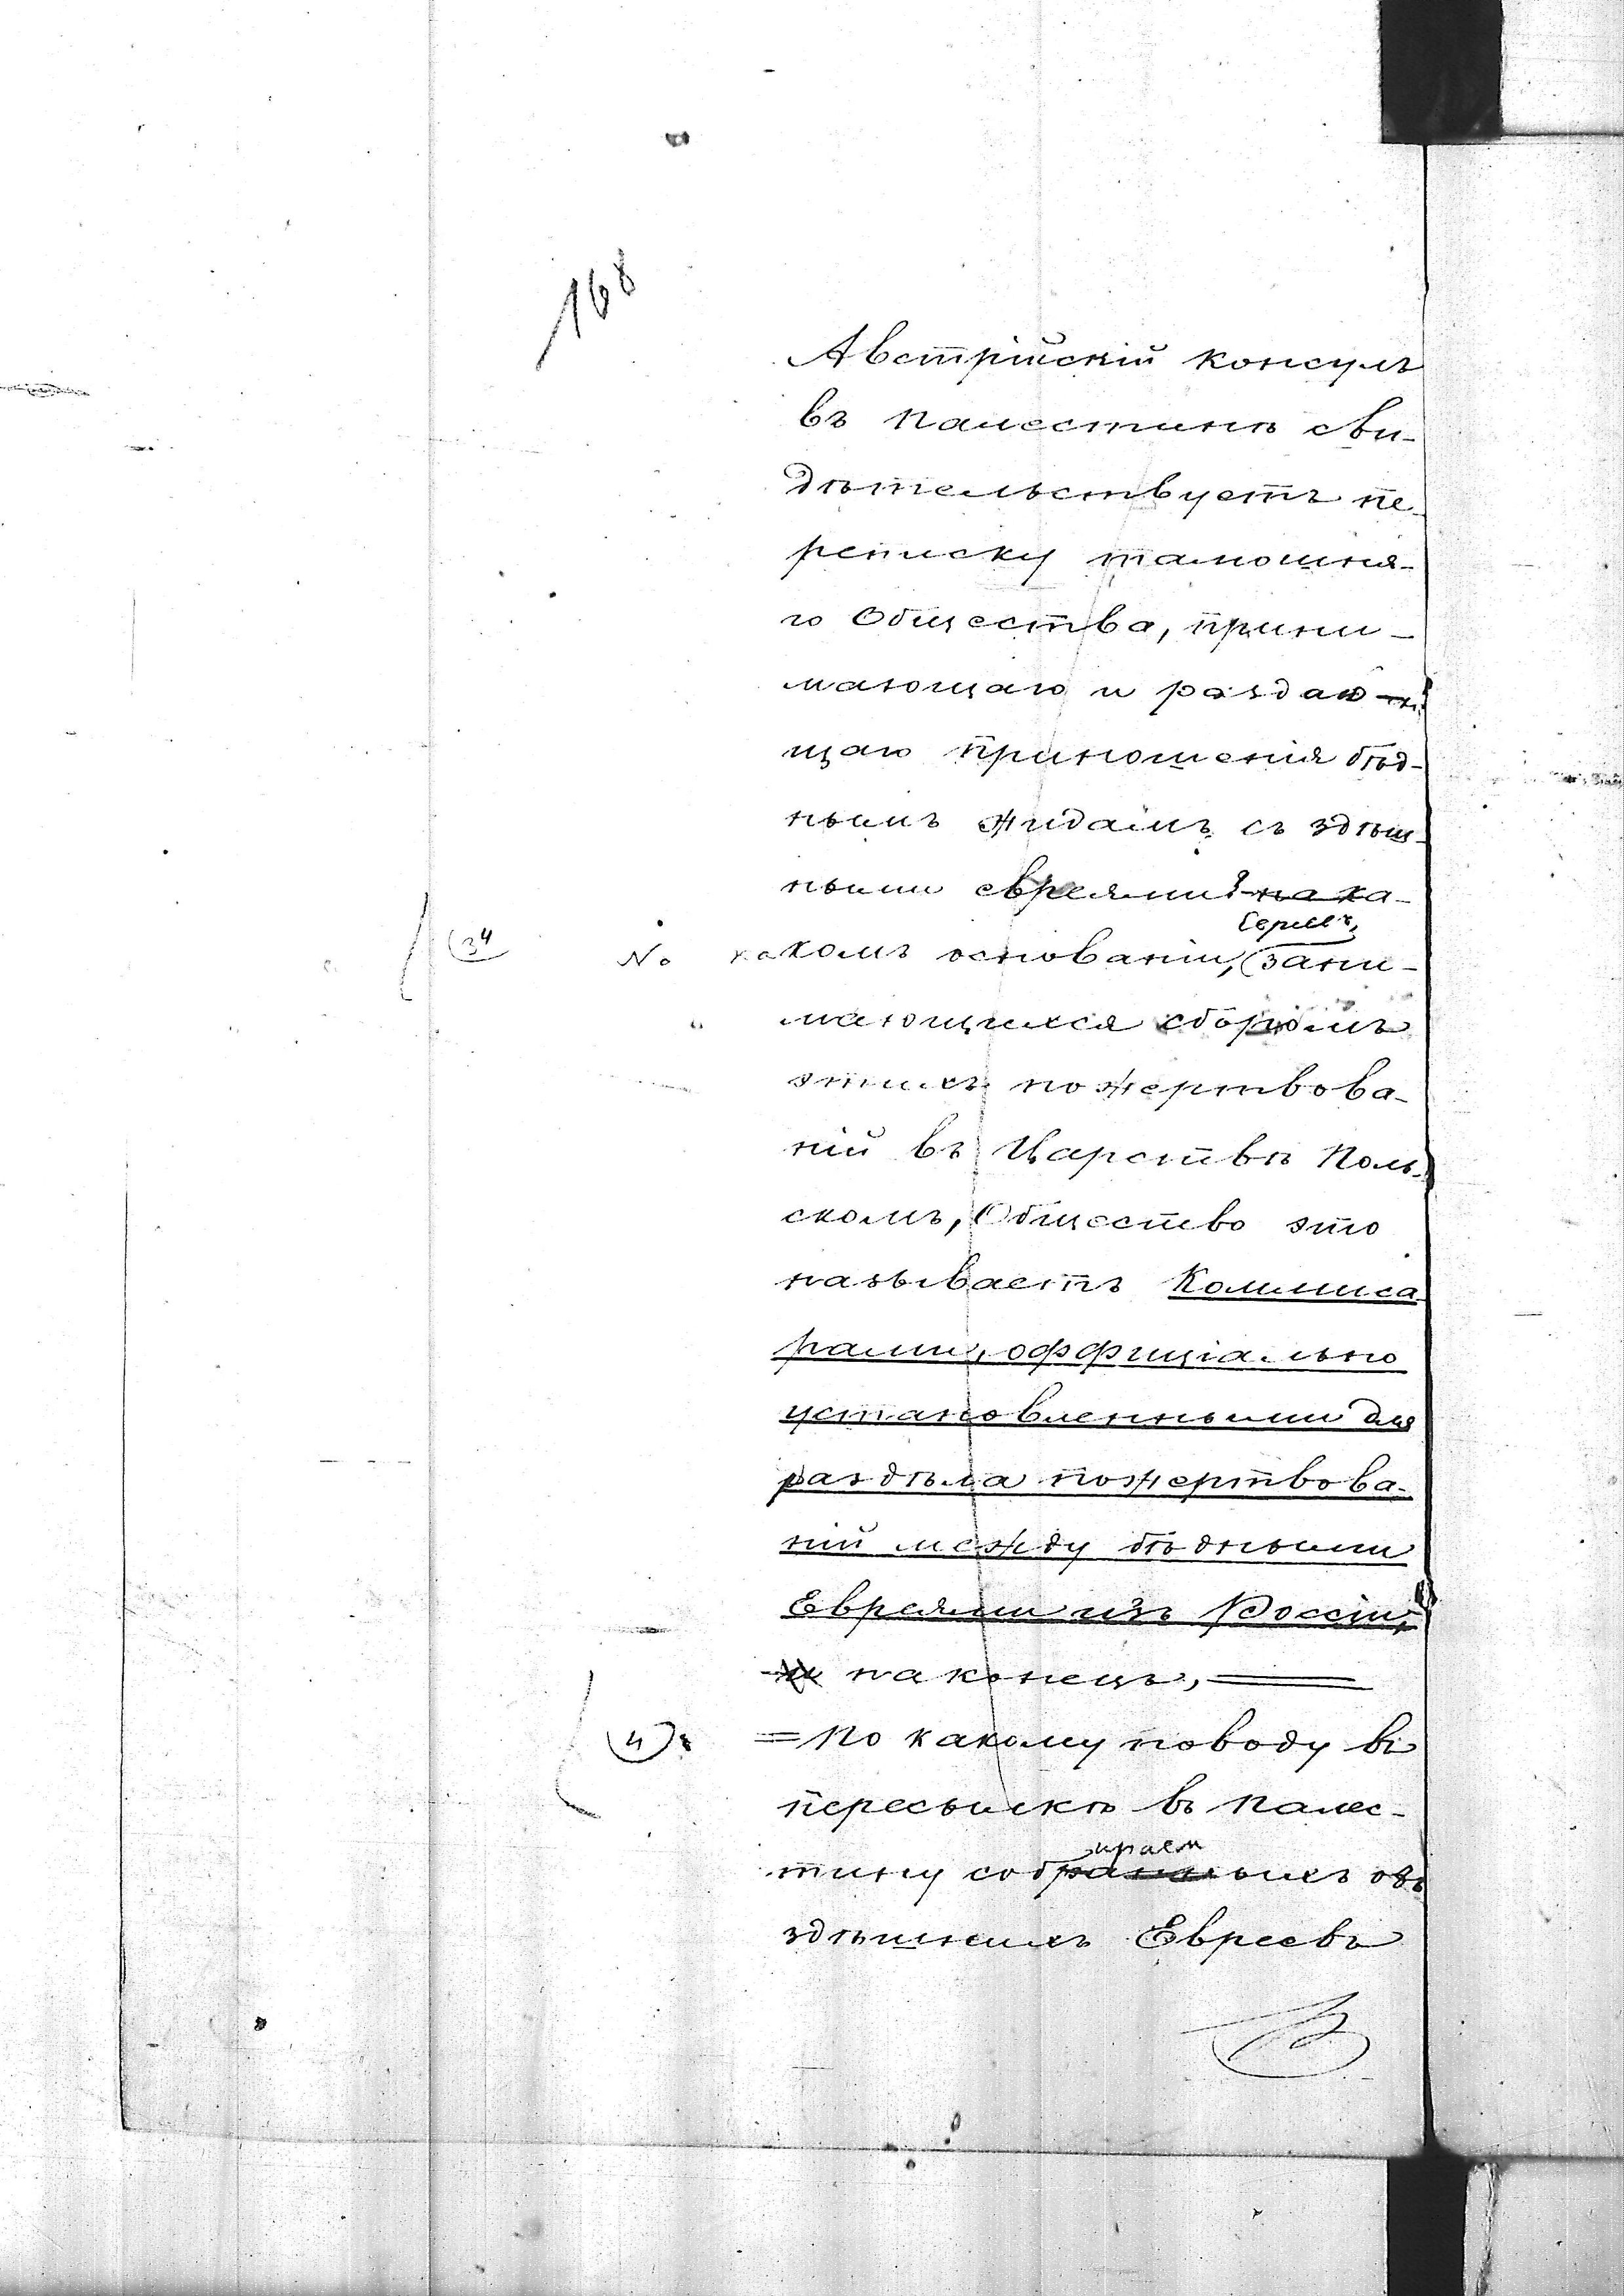 168
Австрійскій консулъ
въ Палестинѣ сви-
дѣтельствуетъ пе-
реписку тамошня-
го Общества, прини-
мающаго и раздаю-
щаго приношенія бѣд-
нымъ жидамъ съ здѣш-
ными евреями? на ка-
34 На ка комъ основаніи, (зани-
мающихся сборомъ
этихъ пожертвова-
ній въ Царствѣ Поль-
скомъ, Общество это
называетъ Коммиса-
рами, оффиціально
установленными для
раздѣла пожертвова-
ній между бѣдными
Евреями изъ Россіи,
и наконецъ,
4) = По какому поводу въ
пересылкѣ въ Палес-
тину собранныхъ
здѣшнихъ Евреевъ